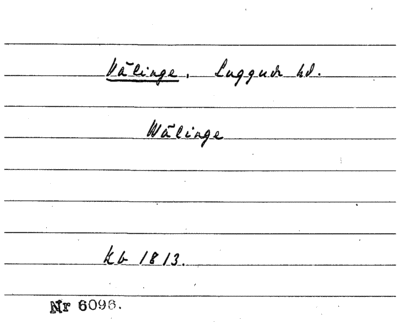 Välinge. Luggude hd.
Wälinge
Kb 1813.
Nr 6096.